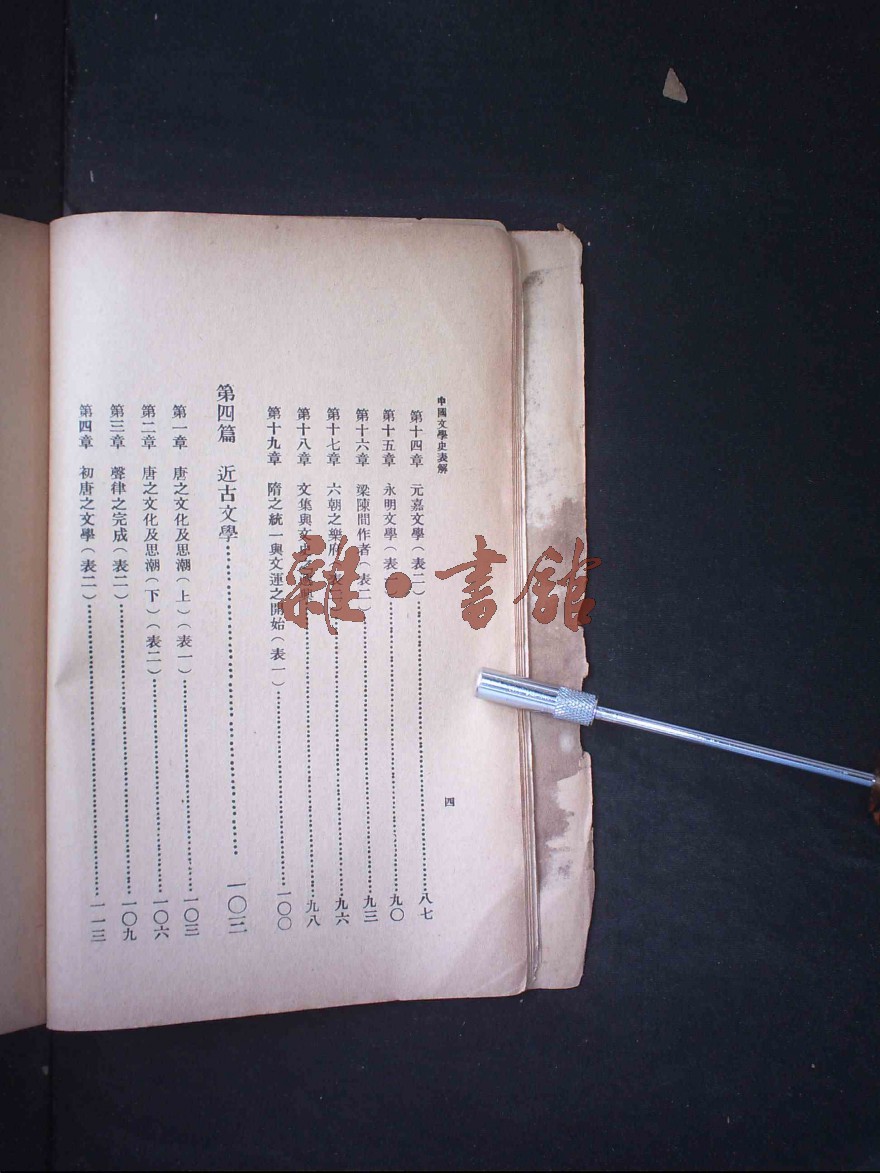 中國文學史表解
第十四章 元嘉文學(表二)……八七
第十五章 永明文學(表……九〇
第十六章 梁陳間作者(表二)……九三
第十七章 六朝之樂府……九六
第十八章 文集與文史……九八
第十九章 隋之統一與文運之開始(表一)……一〇〇
第四篇 近古文學……一〇三
第一章 唐之文化及思潮(上)(表一)……一〇三
第二章 唐之文化及思潮(下)(表二)……一〇六
第三章 聲律之完成(表二)……一〇九
第四章 初唐之文學(表二)……一一三
四
雜·書館